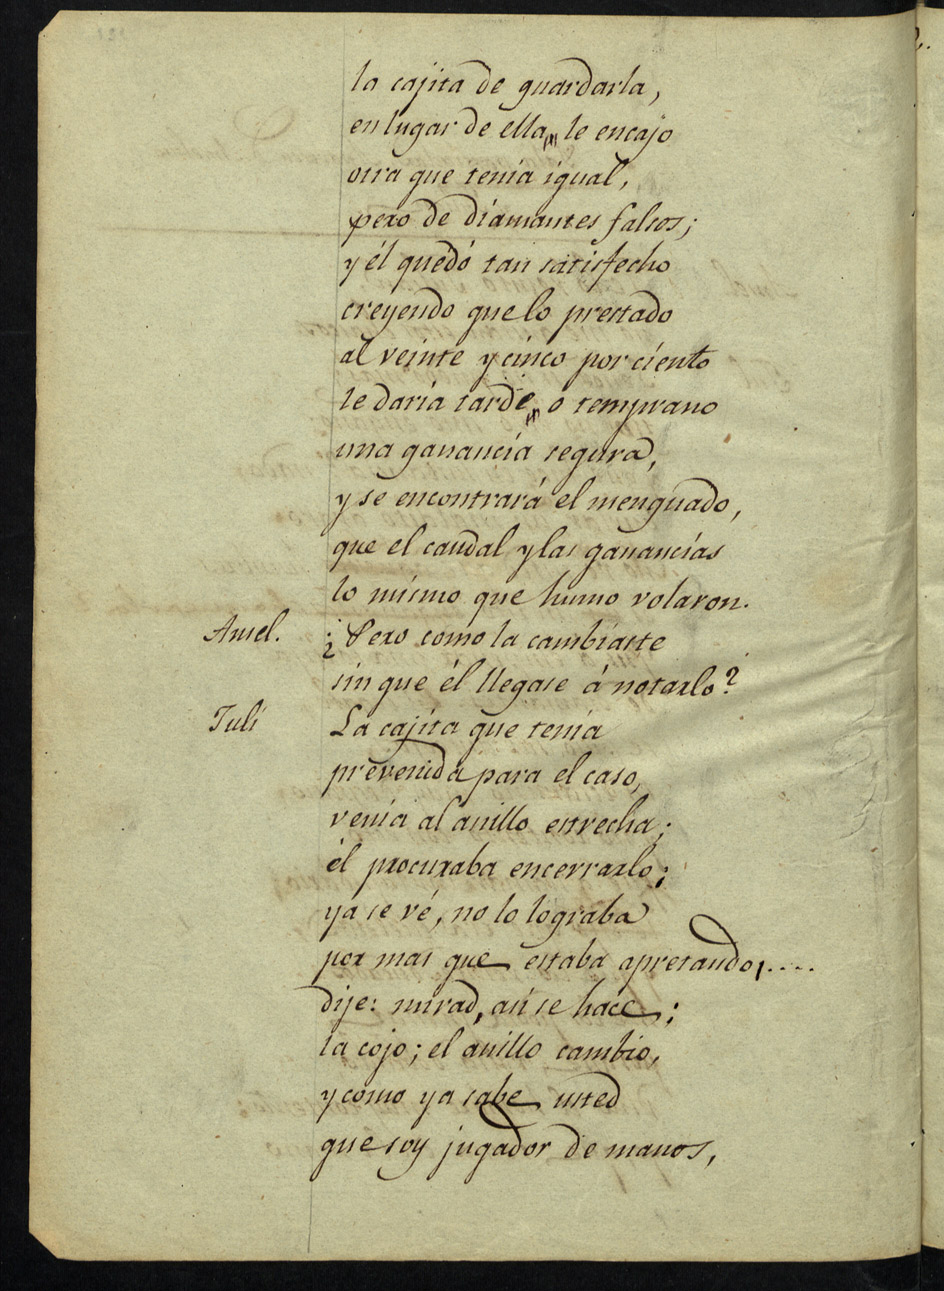 la cajita de guardarla,
en lugar de ella, le encajo
otra que tenia igual,
pero de diamantes falsos;
y él quedó tan satisfecho
creyendo que lo prestado
al veinte y cinco por ciento
le daria tarde, o temprano
una ganancia segura,
y se encontrará el menguado,
que el caudal y las ganancias
lo mismo que humo volaron.
Ansel. ¿Pero como la cambiaste
sin que él llegase á notarlo?
Juli La cajita que tenia
prevenida para el caso,
venia al anillo estrecha;
él procuraba encerrarlo;
ya se vé, no lo lograba
por mas que estaba apretando,....
dije: mirad, asi se hace;
la cojo; el anillo cambio,
y como ya sabe usted
que soy jugador de manos,